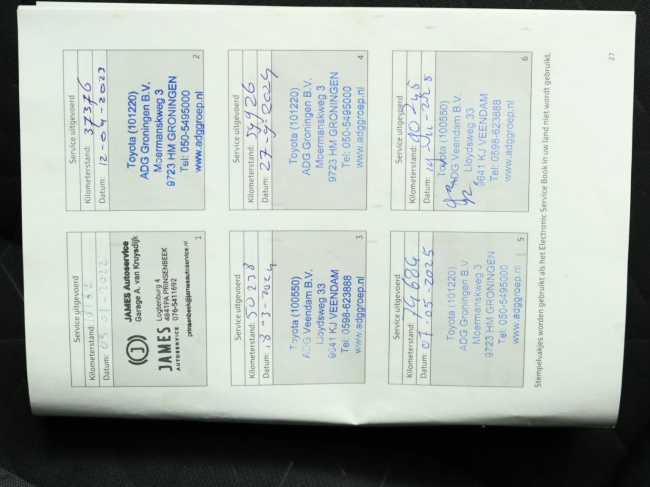 Service uitgevoerd
Kilometerstand:
Datum: 03-01-2022
JAMES Autoservice
Garage A. van Kruysdijk
JAMES
AUTOSERVICE
4841PA PRINSENBEEK
076-5411692
prinsenbeek@jamesautoservice.nl
1
Service uitgevoerd
Kilometerstand: 37376
Datum: 12-04-2023
Toyota (101220)
ADG Groningen B.V.
Moermanskweg 3
9723 HM GRONINGEN
Tel: 050-5495000
www.adggroep.nl
2
Service uitgevoerd
Kilometerstand: 50238
Datum: 18-3-2024
Toyota (100550)
ADG Veendam B.V.
Lloydsweg 33
9641 KJ VEENDAM
Tel: 0598-623888
www.adggroep.nl
3
Service uitgevoerd
Kilometerstand: 59926
Datum: 27-9-2024
Toyota (101220)
ADG Groningen B.V.
Moermanskweg 3
9723 HM GRONINGEN
Tel: 050-5495000
www.adggroep.nl
4
Service uitgevoerd
Kilometerstand: 74684
Datum: 07-05-2025
Toyota (101220)
ADG Groningen B.V.
Moermanskweg 3
9723 HM GRONINGEN
Tel: 050-5495000
www.adggroep.nl
5
Service uitgevoerd
Kilometerstand:
Datum:
Toyota (100550)
ADG Veendam B.V.
Lloydsweg 33
9641 KJ VEENDAM
Tel: 0598-623888
www.adggroep.nl
6
Stempelvakjes worden gebruikt als het Electronic Service Book in uw land niet wordt gebruikt.
27